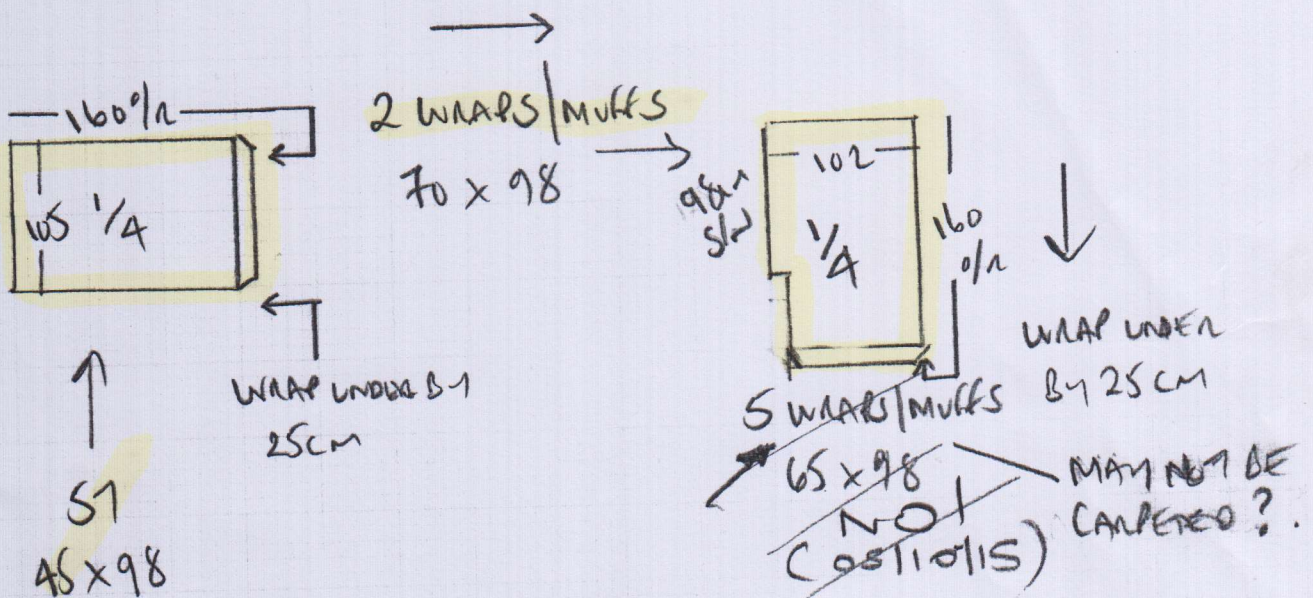 160 o/r
105 1/4
WRAP UNDER BY
25CM
ST
45 x 98
2 WRAPS/MUFFS
70 x 98
102
98
1/4
160
o/r
WRAP UNDER
BY 25 CM
5 WRAPS/MUFFS
65 x 98
NOT
(05/10/15)
MAY NOT BE
CARPETED?